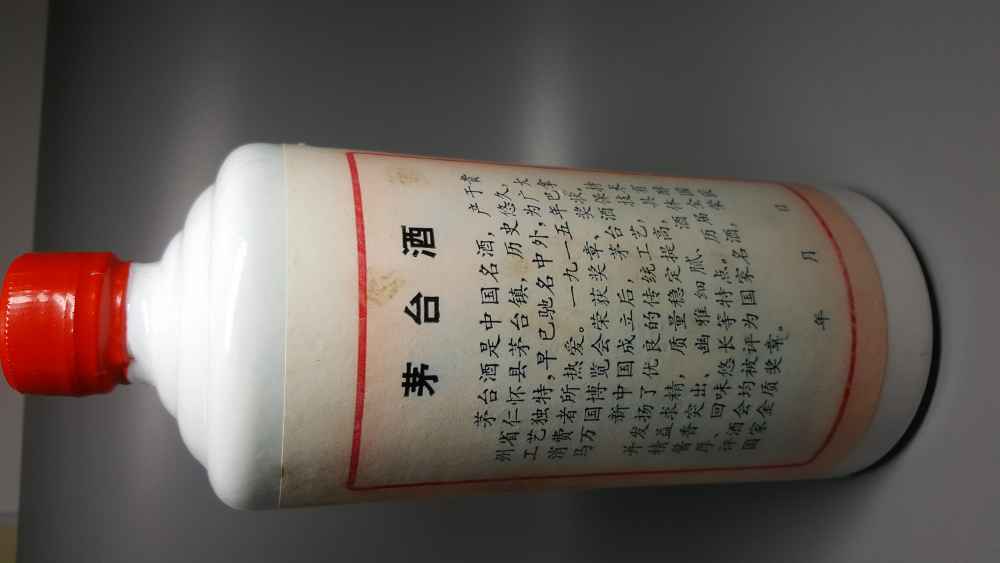 茅台酒
茅台酒是中国名酒，产于贵
州省仁怀县茅台镇，历史悠久，
工艺独特，早已驰名中外，为广大
消费者所热爱。一九一五年巴拿
马万国博览会荣获奖章、奖状。
新中国成立后，茅台酒保持
并发扬了优良的传统工艺，
精益求精，质量稳定提高，
酱香突出、幽雅细腻、酒体醇
厚、回味悠长等特点。历届全国
评酒会均被评为国家名酒，荣获
国家金质奖章。
年 月 日